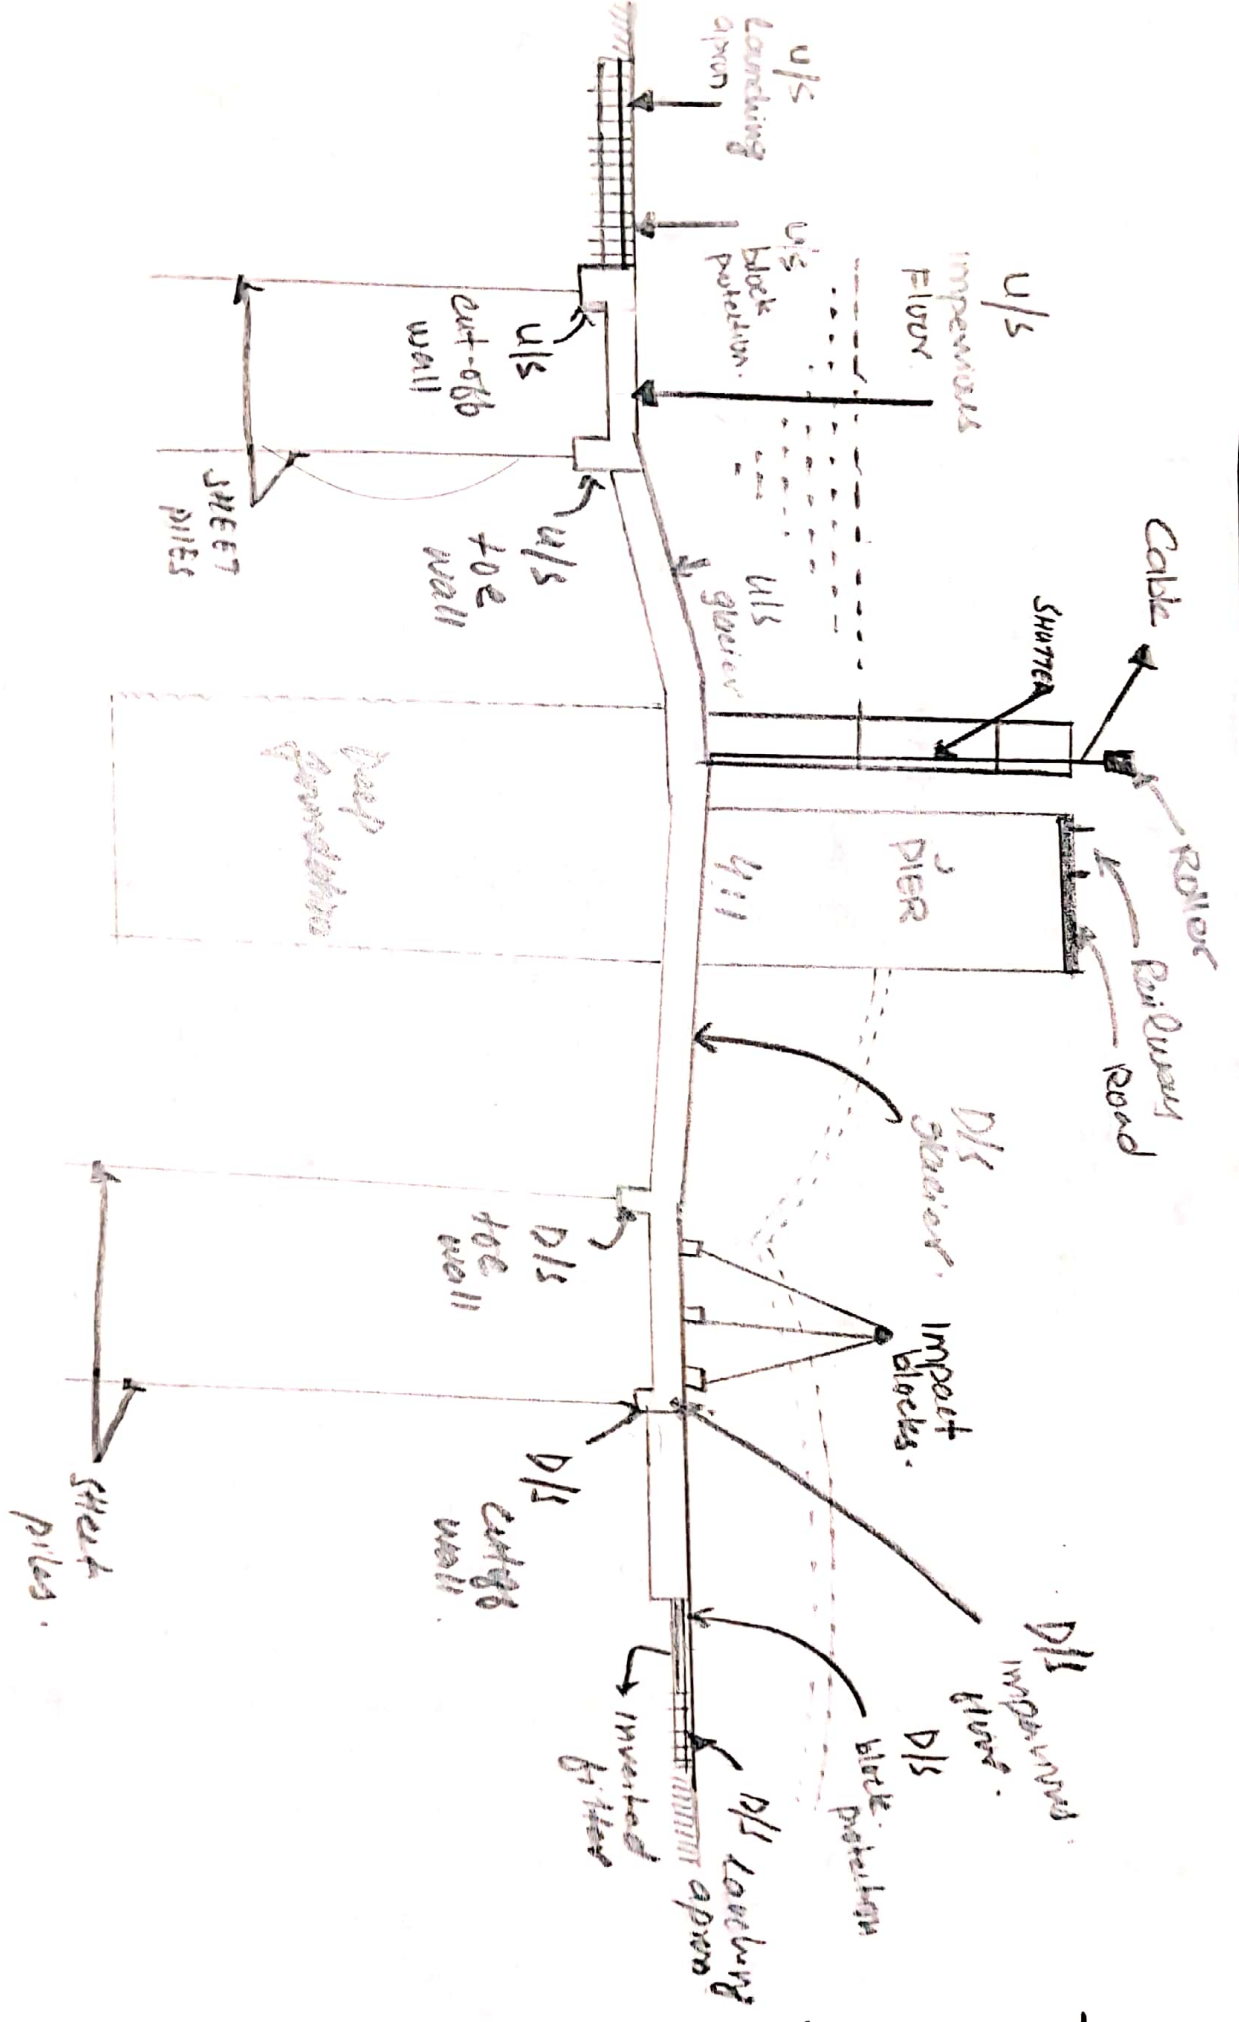 U/S
Launching
apron
U/S
block
protection.
U/S
impervious
Floor.
U/S
cut-off
wall
SHEET
PILES
U/S
toe
wall
U/S
glacier
SHUTTER
Cable
Roller
Railway
Road
PIER
Deep
foundation
D/S
glacier.
D/S
toe
wall
Impact
blocks.
D/S
cutoff
wall
Sheet
piles.
D/S
impervious
floor.
D/S
block
protection
Inverted
filter
D/S Launching
apron